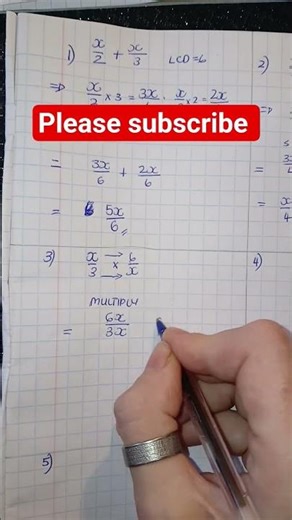 1) x/2 + x/3 LCD=6
2)
=> x/2 × 3 = 3x x/2 × 2 = 2x
Please subscribe
= 3x/6 + 2x/6
= 5x/6
3) x/3 × 6/x
4)
MULTIPLY
= 6x/3x
5)